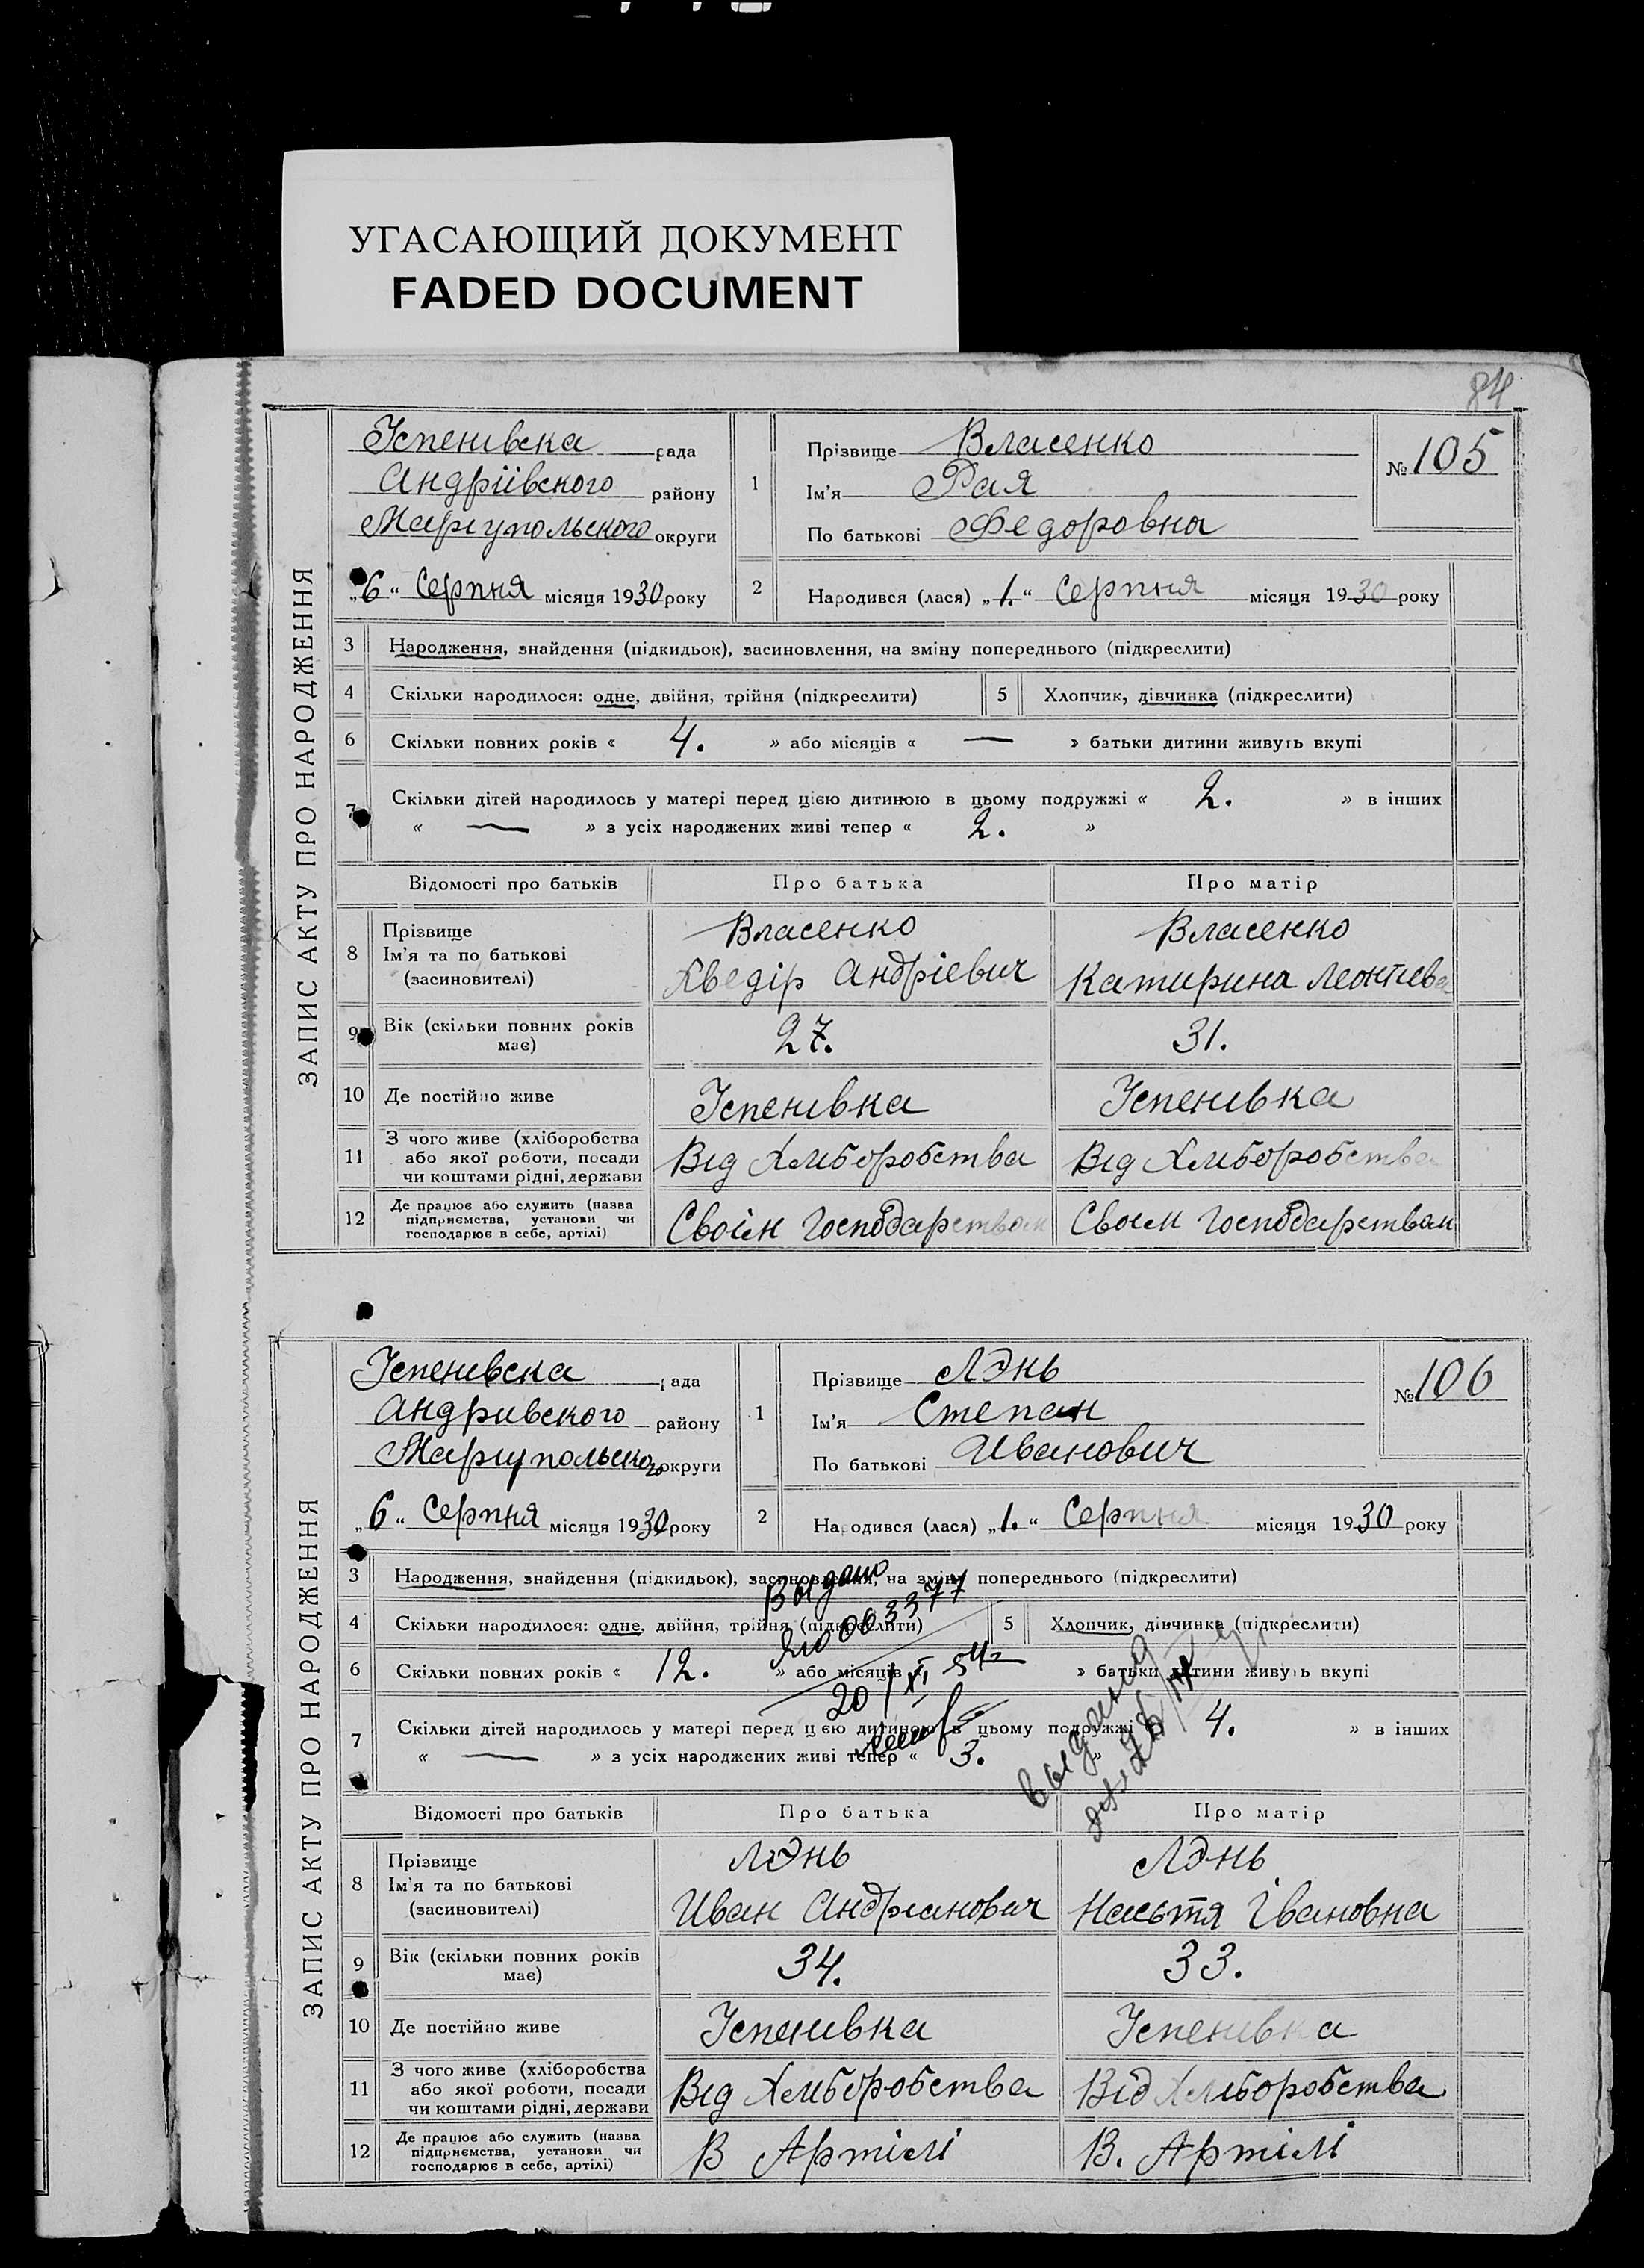 УГАСАЮЩИЙ ДОКУМЕНТ
FADED DOCUMENT
84
ЗАПИС АКТУ ПРО НАРОДЖЕННЯ
Успенивска рада
Андріївского району
Маріупольского округи
„6“ Серпня місяця 1930 року
1
Прізвище Власенко
Ім'я Рая
По батькові Федоровна
№ 105
2
Народився (лася) „1.“ Серпня місяця 1930 року
3 Народження, знайдення (підкидьок), засиновлення, на зміну попереднього (підкреслити)
4 Скільки народилося: одне, двійня, трійня (підкреслити) 5 Хлопчик, дівчинка (підкреслити)
6 Скільки повних років « 4. » або місяців « — » батьки дитини живуть вкупі
7 Скільки дітей народилось у матері перед цією дитиною в цьому подружжі « 2. » в інших
« — » з усіх народжених живі тепер « 2. »
Відомості про батьків Про батька Про матір
8 Прізвище Ім'я та по батькові (засиновителі)
Власенко Власенко
Хведір Андріевич Катирина Леонтивa
9 Вік (скільки повних років має) 27. 31.
10 Де постійно живе Успенивка Успенивка
11 З чого живе (хліборобства або якої роботи, посади чи коштами рідні, держави
Від Хлиборобства Від Хлиборобства
12 Де працює або служить (назва підприємства, установи чи господарює в себе, артілі)
Своім Господарством Своем Господарством
ЗАПИС АКТУ ПРО НАРОДЖЕННЯ
Успенивска рада
Андривского району
Маріупольского округи
„6“ Серпня місяця 1930 року
1
Прізвище Лэнь
Ім'я Степан
По батькові Иванович
№ 106
2
Народився (лася) „1.“ Серпня місяця 1930 року
3 Народження, знайдення (підкидьок), засиновлення, на зміну попереднього (підкреслити)
Выдано
4 Скільки народилося: одне, двійня, трійня (підкреслити) 5 Хлопчик, дівчинка (підкреслити)
ЯЮ 063377
6 Скільки повних років « 12. » або місяців « » батьки дитини живуть вкупі
20/XI 54
7 Скільки дітей народилось у матері перед цією дитиною в цьому подружжі « 4. » в інших
« — » з усіх народжених живі тепер « 3. »
Відомості про батьків Про батька Про матір
8 Прізвище Ім'я та по батькові (засиновителі)
Лэнь Лэнь
Иван Андрианович Настя Івановна
9 Вік (скільки повних років має) 34. 33.
10 Де постійно живе Успенивка Успенивка
11 З чого живе (хліборобства або якої роботи, посади чи коштами рідні, держави
Від Хлиборобства Від Хлиборобства
12 Де працює або служить (назва підприємства, установи чи господарює в себе, артілі)
В Артілі В. Артілі